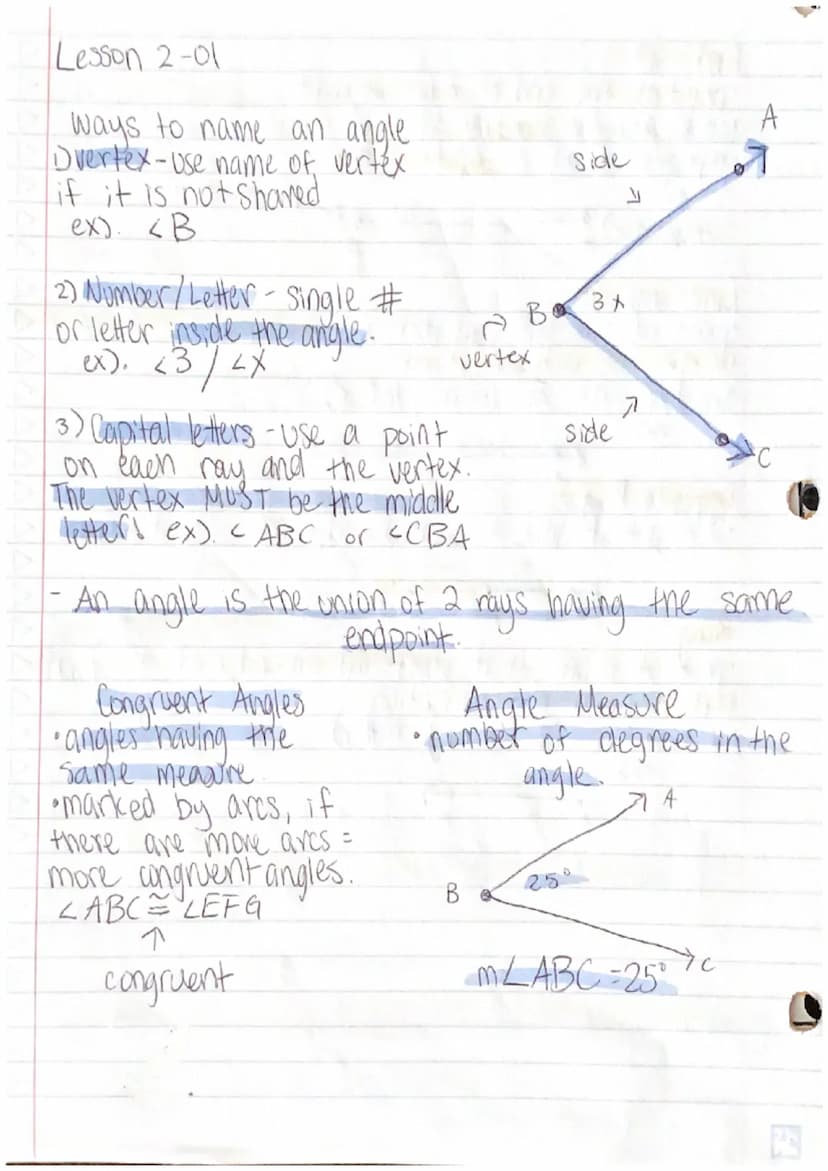 Lesson 2-01
Ways to name an angle
1) vertex - use name of vertex
if it is not shared
ex). ∠B
A
side
B
3 x
vertex
side
C
2) Number/Letter - single #
or letter inside the angle.
ex). ∠3 / ∠X
3) Capital letters - use a point
on each ray and the vertex.
The vertex MUST be the middle
letter! ex). ∠ABC or ∠CBA
- An angle is the union of 2 rays having the same
endpoint.
Congruent Angles
• angles having the
same measure
• marked by arcs, if
there are more arcs =
more congruent angles.
∠ABC ≅ ∠EFG
↑
congruent
Angle Measure
• number of degrees in the
angle.
A
B
25°
C
m∠ABC = 25°